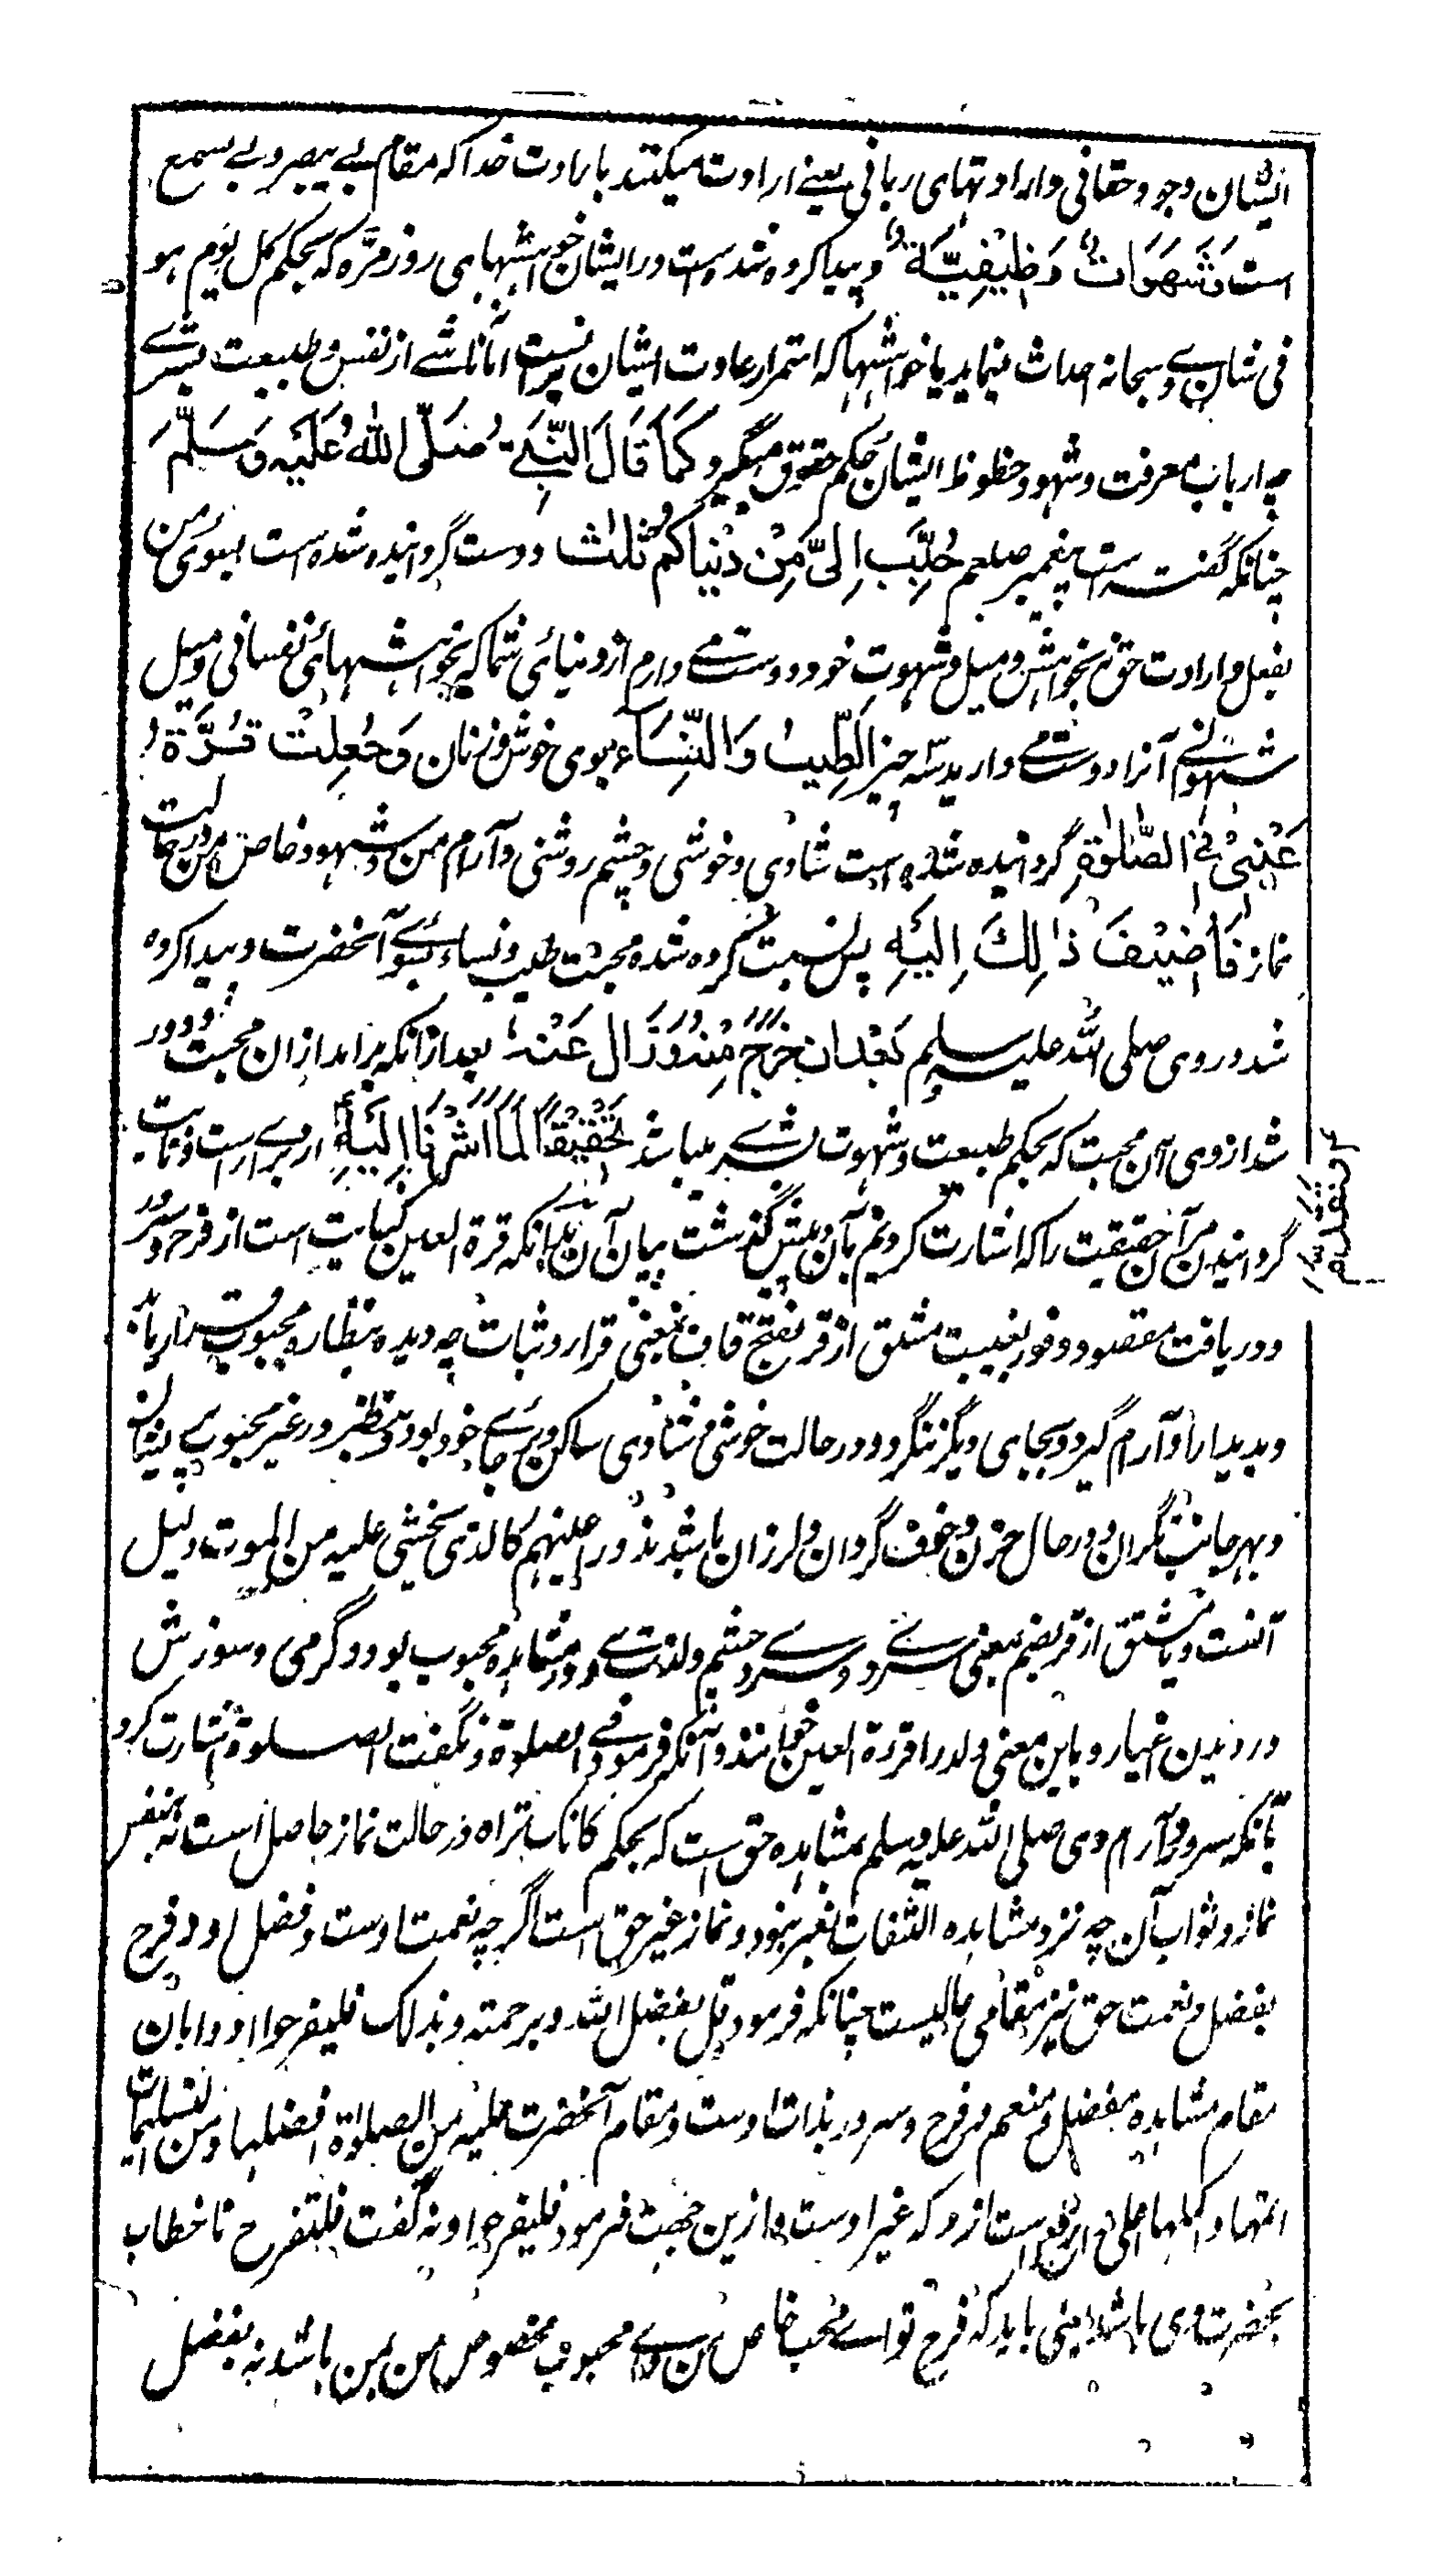 ایشان وجود حقانی و ارادتهای ربانی یعنی ارادت میکنند بارادت خدا که مقام بی یبصر و بی یسمع
است وَشَهَوَاتٌ وَظِيفِيَّةٌ و پیدا کرده شده است در ایشان خواهشهای روزمرّه که بحکم کل یوم هو
فی شان وی سبحانه احداث مینماید یا خواشهها که استمرار عادت ایشان برانست اما ناشے از نفس و طبیعت بشرے
چه ارباب معرفت و شهود حظوظ ایشان حکم حقوق میگیرد كَمَا قَالَ النَّبِيُّ صَلَّى اللهُ عَلَيْهِ وَسَلَّمَ
چنانکه گفته است پیغمبر صلعم حُبِّبَ اِلَىَّ مِنْ دُنْيَاكُمْ ثَلٰثٌ دوست گردانیده شده است بسوی من
بفعل و ارادت حق نه بخواهش و میل و شهوت خود دوست مے دارم از دنیائی شما که بخواهشهائی نفسانی و میل
شهوانی آنرا دوست مے دارید سه چیز اَلطِّيبُ وَالنِّسَاءُ بوی خوش و زنان وَجُعِلَتْ قُرَّةُ
عَيْنِىْ فِى الصَّلٰوةِ گردانیده شده است شادی و خوشی و چشم روشنی و آرام من و شهود خاص من در حالت
نماز فَاُضِيْفَ ذٰلِكَ اِلَيْهِ پس نسبت کرده شده محبت طیب و نساء بسوے آنحضرت و پیدا کرده
شد در وی صلی الله علیه و سلم بَعْدَ اَنْ خَرَجَ مِنْهُ وَزَالَ عَنْهُ بعد از آنکه برآمد از ان محبت و دور
شد از وی آن محبت که بحکم طبیعت و شهوت بشرے میباشد تَحْقِيْقًا لِمَا اَشَرْنَا اِلَيْهِ از براے راست و ثابت
گردانیدن مر آن حقیقت را که اشارت کردیم بآن و پیش گذشت بیان آن بدانکه قرة العین کنایت است از فرح و سرور
و دریافت مقصود و فوز بغیبت مشتق از قر بفتح قاف بمعنی قرار و ثبات چه دیده بنظاره محبوب قرار یابد
و بدیدار او آرام گیرد و بجای دیگر ننگرد و در حالت خوشی و شادی ساکن و بر جاے خود بود و بنظر در غیر محبوب پریشان
و بهر جانب نگران و در حال حزن و خوف گردان و لرزان باشد تدور اعینهم کالذی یغشی علیه من الموت دلیل
آنست و یا مشتق از قر بضم بمعنی سردے و سردے چشم و لذت وے در مشاهده محبوب بود و گرمی و سوزش
در دیدن اغیار و باین معنی ولد را قرة العین خوانند و آنکه فرمود فے الصلوة و نگفت الصلوة اشارت کرد
بآنکه سرور و آرام وی صلی الله علیه و سلم بمشاهده حق است که بحکم کانک تراه در حالت نماز حاصل است نه بنفس
نماز و ثواب آن چه نزد مشاهده التفات بغیر نبود و نماز غیر حق است اگرچه نعمت اوست و فضل او و فرح
بفضل و نعمت حق نیز مقامی عالیست چنانکه فرمود قل بفضل الله و برحمته و بذلک فلیفرحوا اما
مقام مشاهده مفضل و منعم و فرح و سرور بذات اوست و مقام آنحضرت علیه من الصلوة افضلها و من التسلیمات
اتمها و اکملها اعلی و ارفع است ازو که غیر اوست و ازین جهت فرمود فلیفرحوا و نه گفت فلتفرح تا خطاب
بحضرت وی باشد یعنی باید که فرح تو اے محب خاص من و اے محبوب مخصوص من بمن باشد نه بفضل